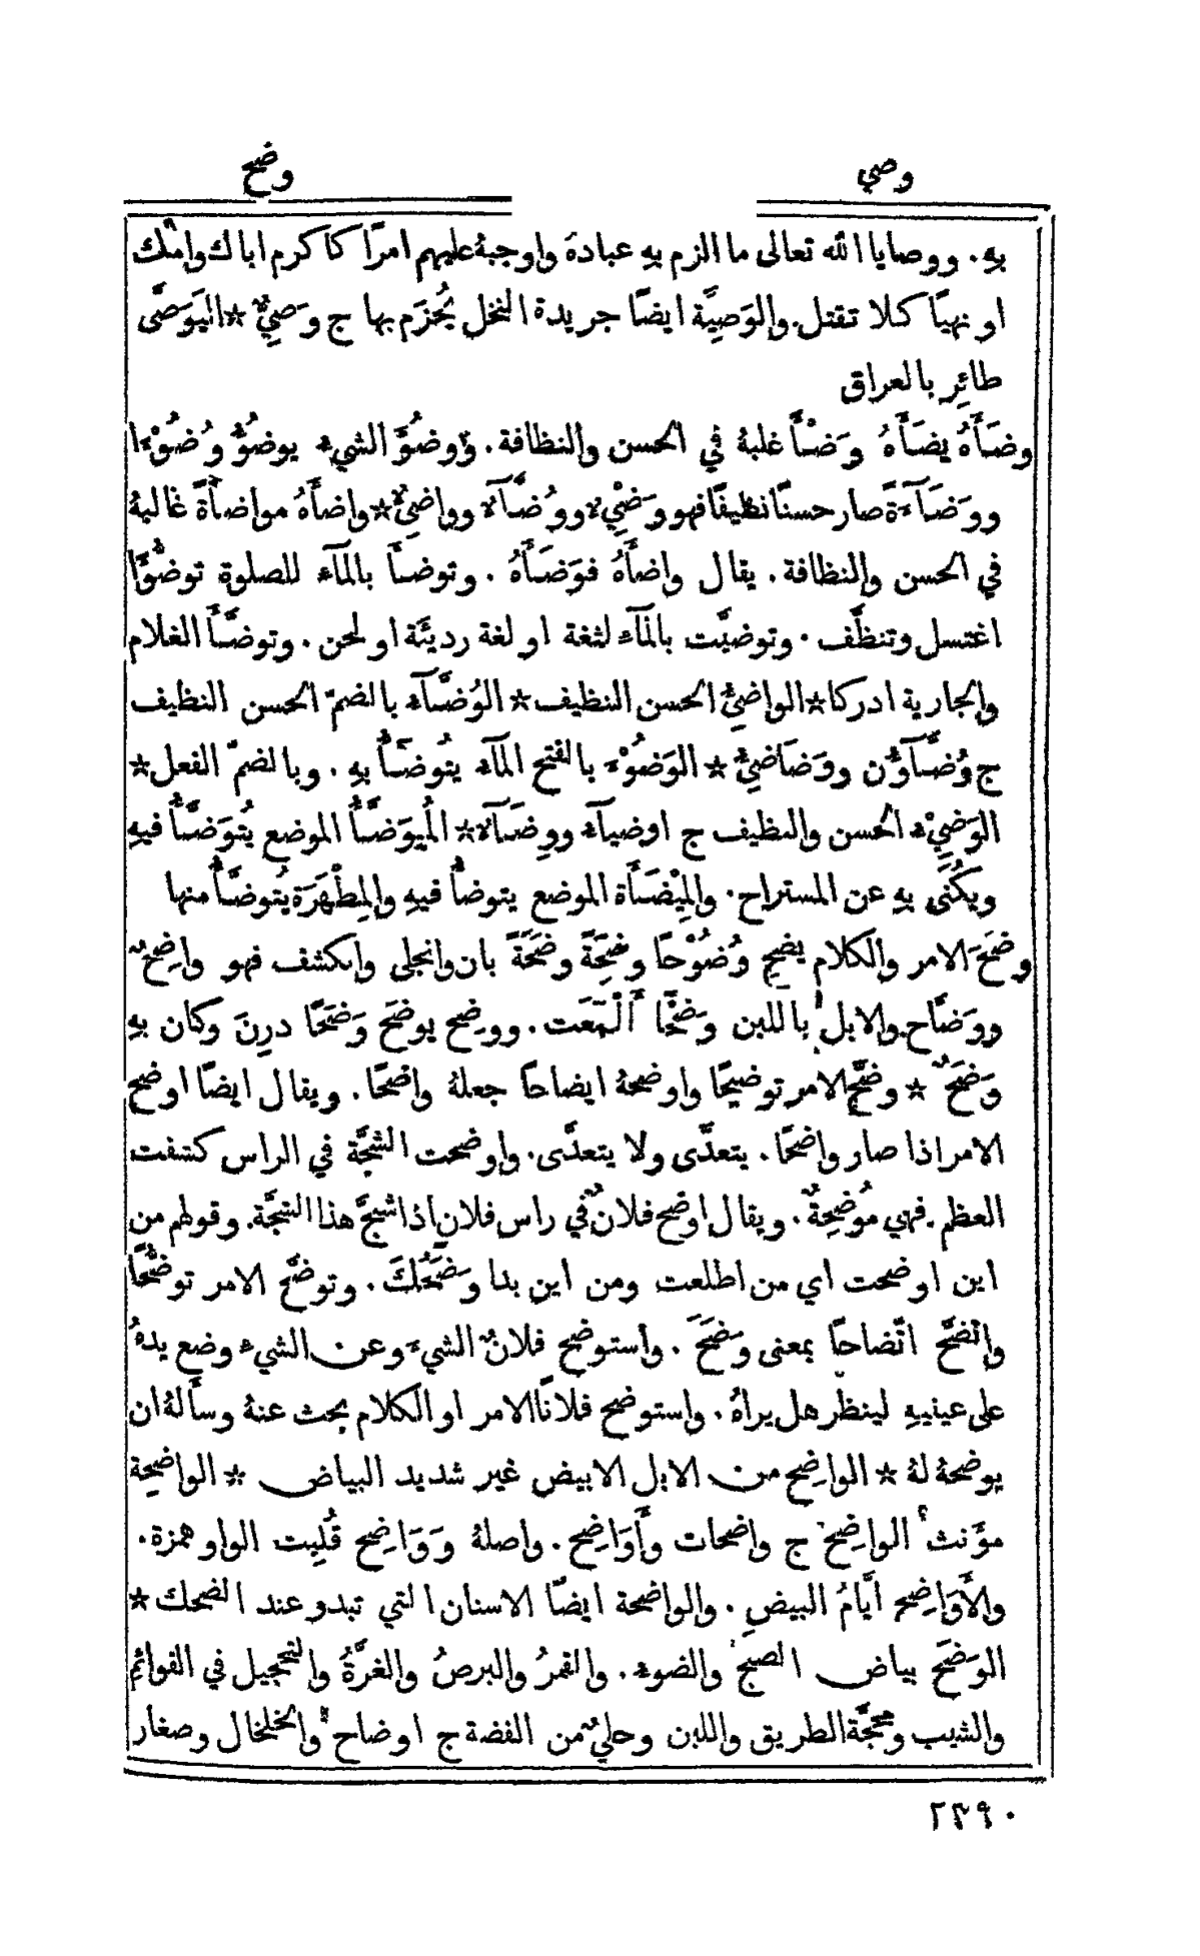 وصي
وضح
بهِ. ووصايا الله تعالى ما الزم بهِ عبادهُ واوجبهُ عليهم امرًا كاكرم اباك وامك
او نهيًا كلا تقتل. والوَصِيَّة ايضًا جريدة النخل يُحزَم بها ج وَصِيٌّ * اليَوَصَّى
طائِر بالعراق
وضَأَهُ يضَأَهُ وَضْأً غلبهُ في الحسن والنظافة. ووضُؤَ الشيءُ يوضُؤُ وُضُوْءًا
ووَضَآءَةً صار حسنًا نظيفًا فهو وَضِيْءٌ ووُضَّآءٌ وواضِئٌ * واضأَهُ مواضأَةً غالبهُ
في الحسن والنظافة. يقال واضأَهُ فوَضَأَهُ. وتوضَّأَ بالمآءِ للصلوة توضُّؤًا
اغتسل وتنظَّف. وتوضيَّت بالمآءِ لثغة او لغة رديئَة او لحن. وتوضَّأَ الغلام
والجارية ادركا * الواضِئُ الحسن النظيف * الوُضَّآءُ بالضمّ الحسن النظيف
ج وُضَّآؤُن ووَضَاضِئُ * الوَضُوْءُ بالفتح المآءُ يُتوضَّأُ بهِ. وبالضمّ الفعل *
الوَضِيْءُ الحسن والنظيف ج اوضيآءُ ووِضَآءٌ * المُيَوَضَّأُ الموضع يُتوَضَّأُ فيهِ
ويكُنَى بهِ عن المستراح. والمِيْضَأَة الموضع يتوضأُ فيهِ والمِطْهَرَة يُتوضَّأُ منها
وضَحَ الامر والكلام يضِح وُضُوْحًا وضِحَةً وضَحَةً بان وانجلى وانكشف فهو واضِحٌ
ووَضَّاح. والابل باللبن وَضْحًا أَلْمَعَت. ووضِح يوضَح وَضَحًا درِنَ وكان بهِ
وَضَحٌ * وضَّح الامر توضيحًا واوضحهُ ايضاحًا جعلهُ واضحًا. ويقال ايضًا اوضح
الامر اذا صار واضحًا. يتعدَّى ولا يتعدَّى. واوضحت الشجَّة في الراس كشفت
العظم. فهي مُوْضِحةٌ. ويقال اوضح فلانٌ في راس فلانٍ اذا شجَّ هذا الشجَّة. وقولهم من
اين اوضحت اي من اطلعت ومن اين بدا وَضَحُكَ. وتوضَّح الامر توضُّحًا
واتَّضَح اتّضاحًا بمعنى وَضَحَ. واستوضح فلانٌ الشيءَ وعن الشيءِ وضع يدهُ
على عينيهِ لينظر هل يراهُ. واستوضح فلانًا الامر او الكلام بحث عنهُ وسأَلهُ ان
يوضحهُ لهُ * الواضِح من الابل الابيض غير شديد البياض * الواضِحة
مؤَنث الواضِح ج واضحات وأَوَاضِح. واصلهُ وَوَاضِح قُلِبت الواو همزة.
والأَوَاضِح ايَّامُ البيضِ. والواضحة ايضًا الاسنان التي تبدو عند الضحك *
الوَضَح بياض الصبح والضوءُ. والقمرُ والبرصُ والغرَّةُ والتحجيل في القوائم
والشيب ومحجَّة الطريق واللبن وحليٌ من الفضة ج اوضاح والخلخال وصغار
٢٣٩٠